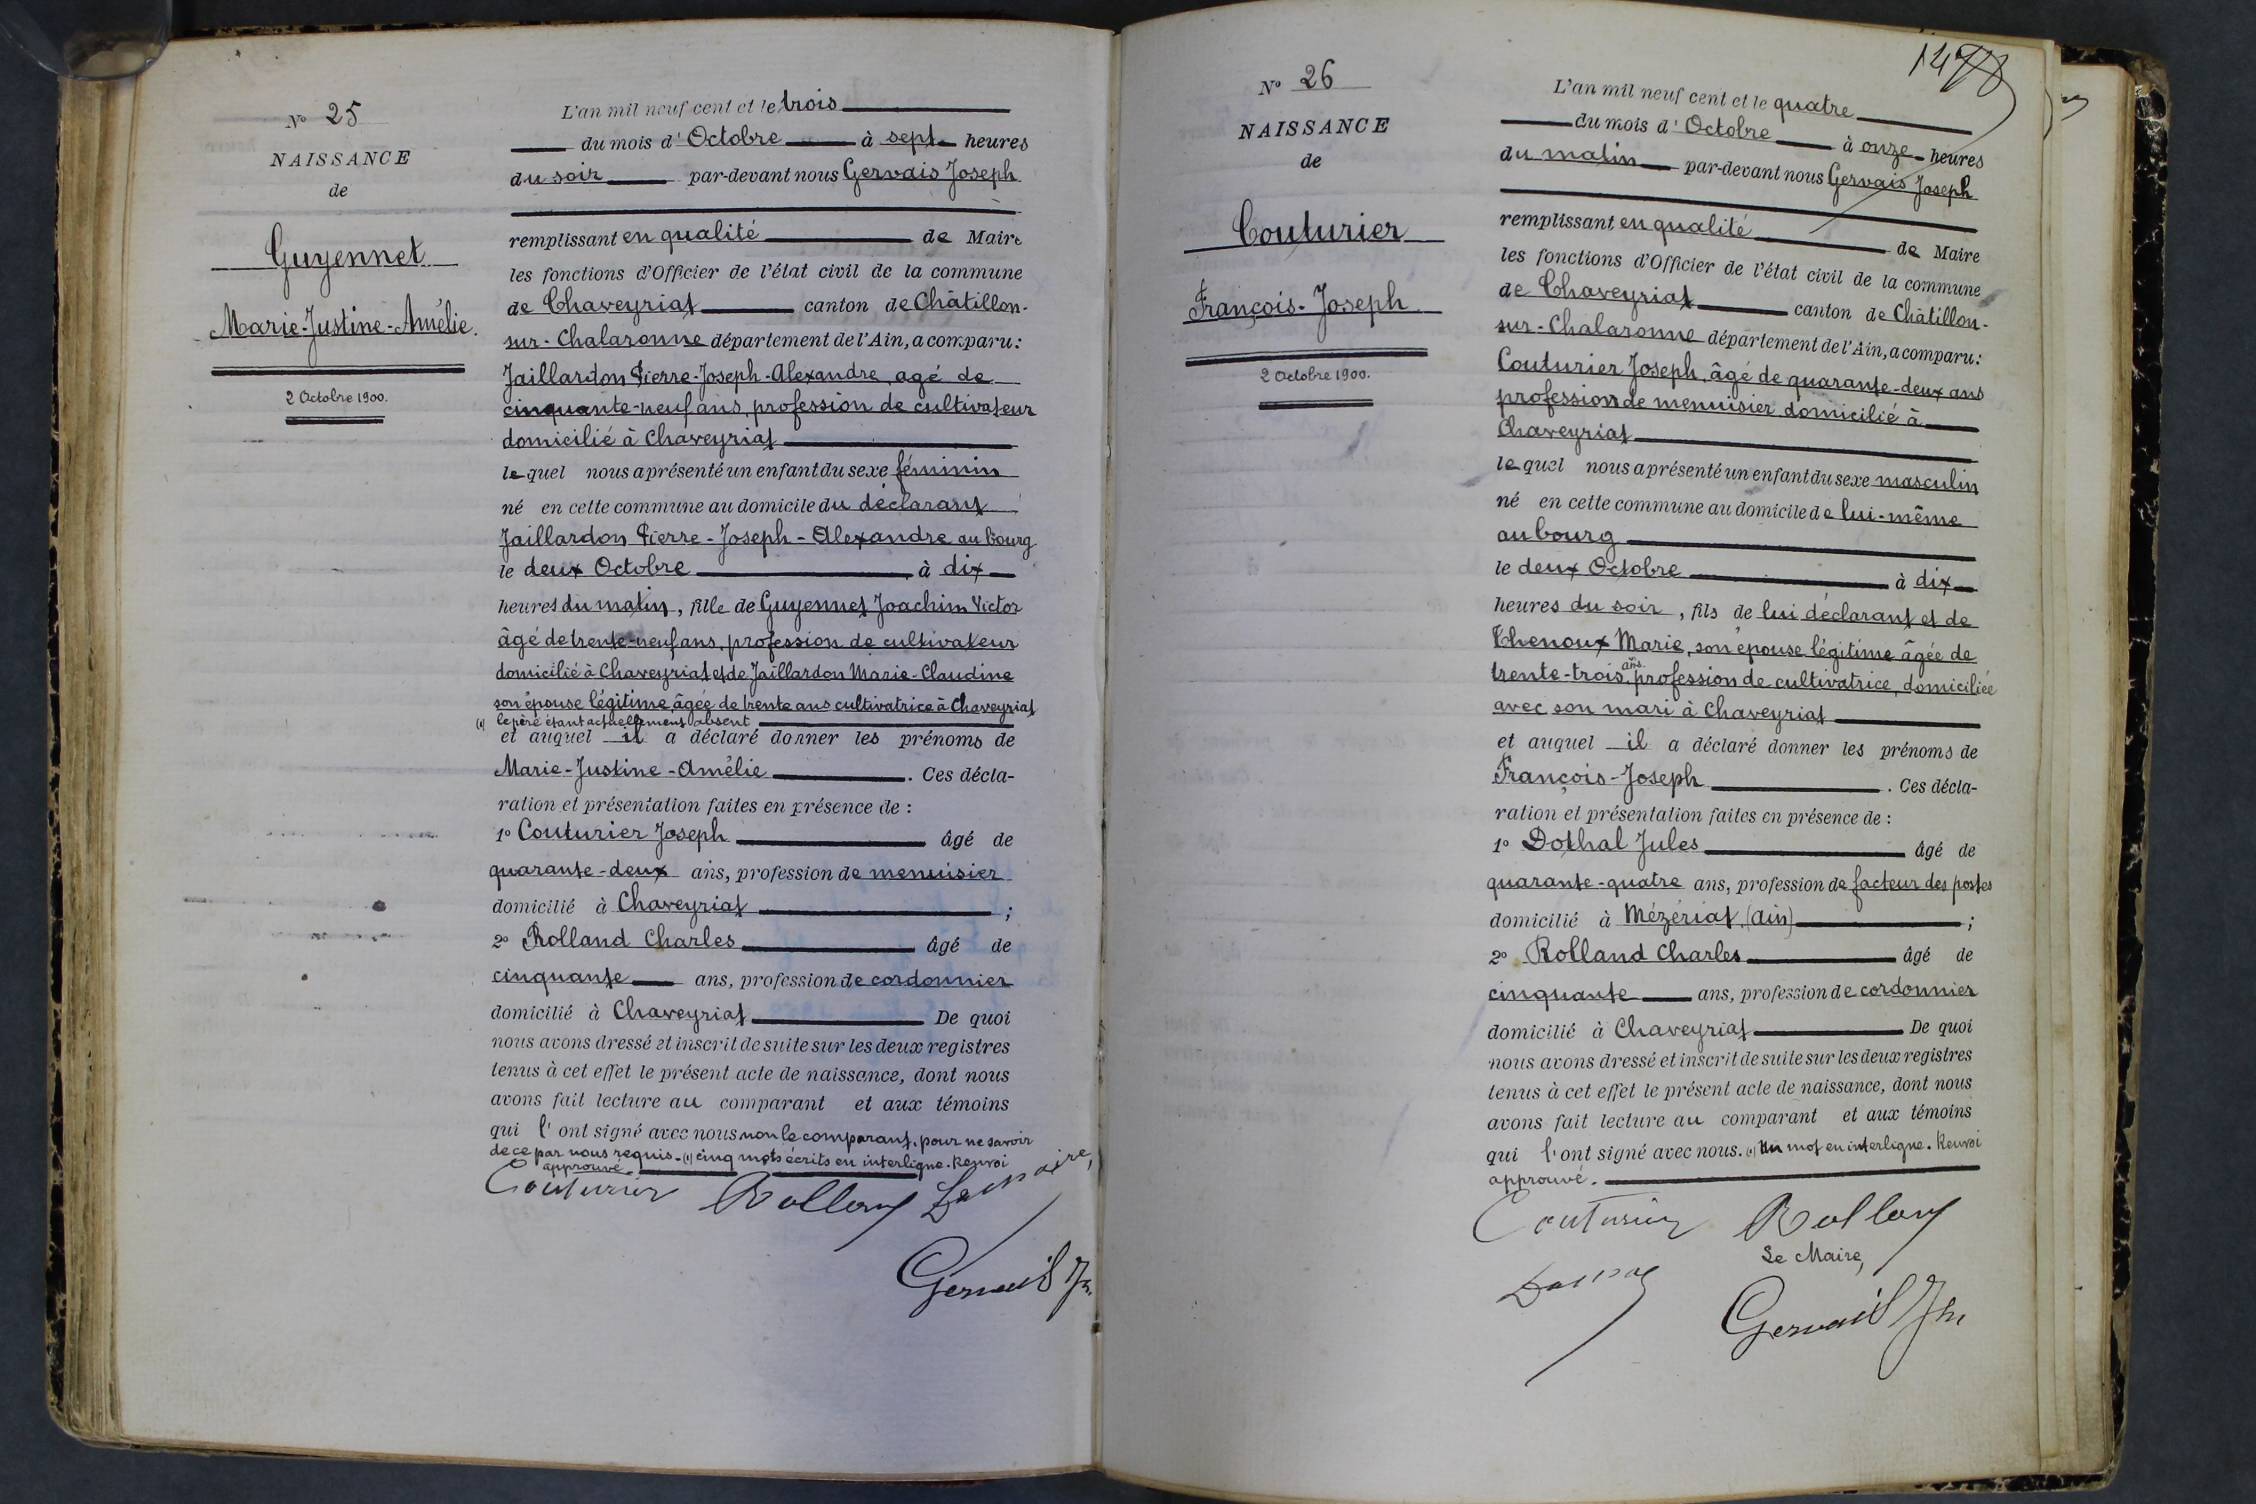 N° 25
NAISSANCE
de
Guyennet
Marie-Justine-Amélie.
2 Octobre 1900.
L'an mil neuf cent et le trois
du mois d'Octobre à sept heures
du soir par-devant nous Gervais Joseph
remplissant en qualité de Maire
les fonctions d'Officier de l'état civil de la commune
de Chaveyriat canton de Châtillon-
sur-Chalaronne département de l'Ain, a comparu:
Jaillardon Pierre-Joseph-Alexandre, agé de
cinquante-neuf ans, profession de cultivateur
domicilié à Chaveyriat
lequel nous a présenté un enfant du sexe féminin
né en cette commune au domicile du déclarant
Jaillardon Pierre-Joseph-Alexandre au bourg
le deux Octobre à dix
heures du matin, fille de Guyennet Joachim Victor
âgé de trente-neuf ans, profession de cultivateur
domicilié à Chaveyriat et de Jaillardon Marie-Claudine
son épouse légitime, âgée de trente ans cultivatrice à Chaveyriat
(1) le père étant actuellement absent
et auquel il a déclaré donner les prénoms de
Marie-Justine-Amélie. Ces décla-
ration et présentation faites en présence de :
1° Couturier Joseph âgé de
quarante-deux ans, profession de menuisier
domicilié à Chaveyriat ;
2° Rolland Charles âgé de
cinquante ans, profession de cordonnier
domicilié à Chaveyriat De quoi
nous avons dressé et inscrit de suite sur les deux registres
tenus à cet effet le présent acte de naissance, dont nous
avons fait lecture au comparant et aux témoins
qui l'ont signé avec nous non le comparant, pour ne savoir
de ce par nous requis. (1) cinq mots écrits en interligne. Renvoi
approuvé.
Couturier Rolland Le Maire,
Gervais Jh.
1478
N° 26
NAISSANCE
de
Couturier
François-Joseph
2 Octobre 1900.
L'an mil neuf cent et le quatre
du mois d'Octobre à onze heures
du matin par-devant nous Gervais Joseph
remplissant en qualité de Maire
les fonctions d'Officier de l'état civil de la commune
de Chaveyriat canton de Châtillon-
sur-Chalaronne département de l'Ain, a comparu:
Couturier Joseph, âgé de quarante-deux ans
profession de menuisier domicilié à
Chaveyriat
lequel nous a présenté un enfant du sexe masculin
né en cette commune au domicile de lui-même
au bourg
le deux Octobre à dix
heures du soir, fils de lui déclarant et de
Thenoux Marie, son épouse légitime âgée de
trente-trois ans, profession de cultivatrice, domiciliée
avec son mari à Chaveyriat
et auquel il a déclaré donner les prénoms de
François-Joseph. Ces décla-
ration et présentation faites en présence de :
1° Dothal Jules âgé de
quarante-quatre ans, profession de facteur des postes
domicilié à Mézériat (Ain) ;
2° Rolland Charles âgé de
cinquante ans, profession de cordonnier
domicilié à Chaveyriat De quoi
nous avons dressé et inscrit de suite sur les deux registres
tenus à cet effet le présent acte de naissance, dont nous
avons fait lecture au comparant et aux témoins
qui l'ont signé avec nous. (1) Un mot en interligne. Renvoi
approuvé.
Couturier Rolland
Le Maire,
Gervais Jh